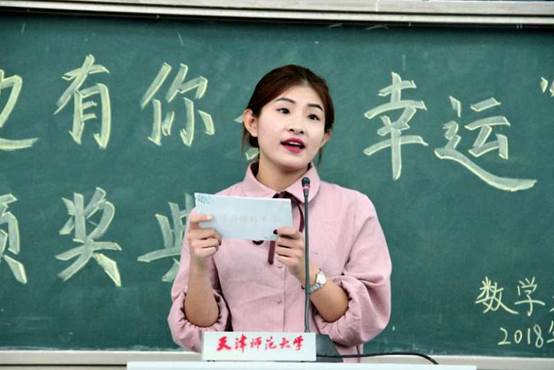 也有你 幸运"
颁奖典
数学
2018年
天津师范大学